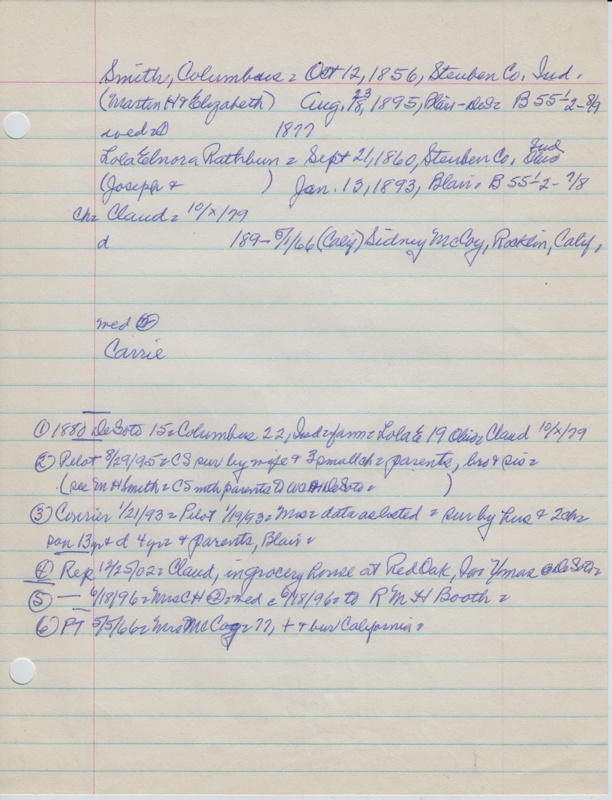 Smith, Columbus = Oct 12, 1856, Steuben Co. Ind.
(Martin H & Elizabeth) Aug. 23 18, 1895, Blair - DeS = B 55-1/2 - 8/9
wed 1877
Lola Elnora Rathbun = Sept 21, 1860, Steuben Co. Ind
(Joseph & ) Jan. 13, 1893, Blair = B 55-1/2 - 7/8
ch = Claud = 10/x/79
d 189- 5/1/66 (Calif) Sidney McCoy, Rocklin, Calif.
wed ②
Carrie
① 1880 DeSoto 15 = Columbus 22, Ind = farm = Lola E 19 Ohio = Claud 10/x/79
② Pilot 8/29/95 = CS sur by wife & 3 small ch = parents, bro & sis =
(see M H Smith = CS with parents to DeSoto = )
③ Courier 1/21/93 = Pilot 1/19/93 = Mrs = data as listed = sur by hus & 2 ch =
son 13 yr & d 4 yr = & parents, Blair =
④ Rep 12/25/02 = Claud, in grocery house at Red Oak, Ia = Xmas @ DeSoto =
⑤ — 6/18/96 = Mrs C H ② = wed = 6/18/96 = to R M H Booth =
⑥ PT 5/5/66 = Mrs McCoy = 77, + + bur California =